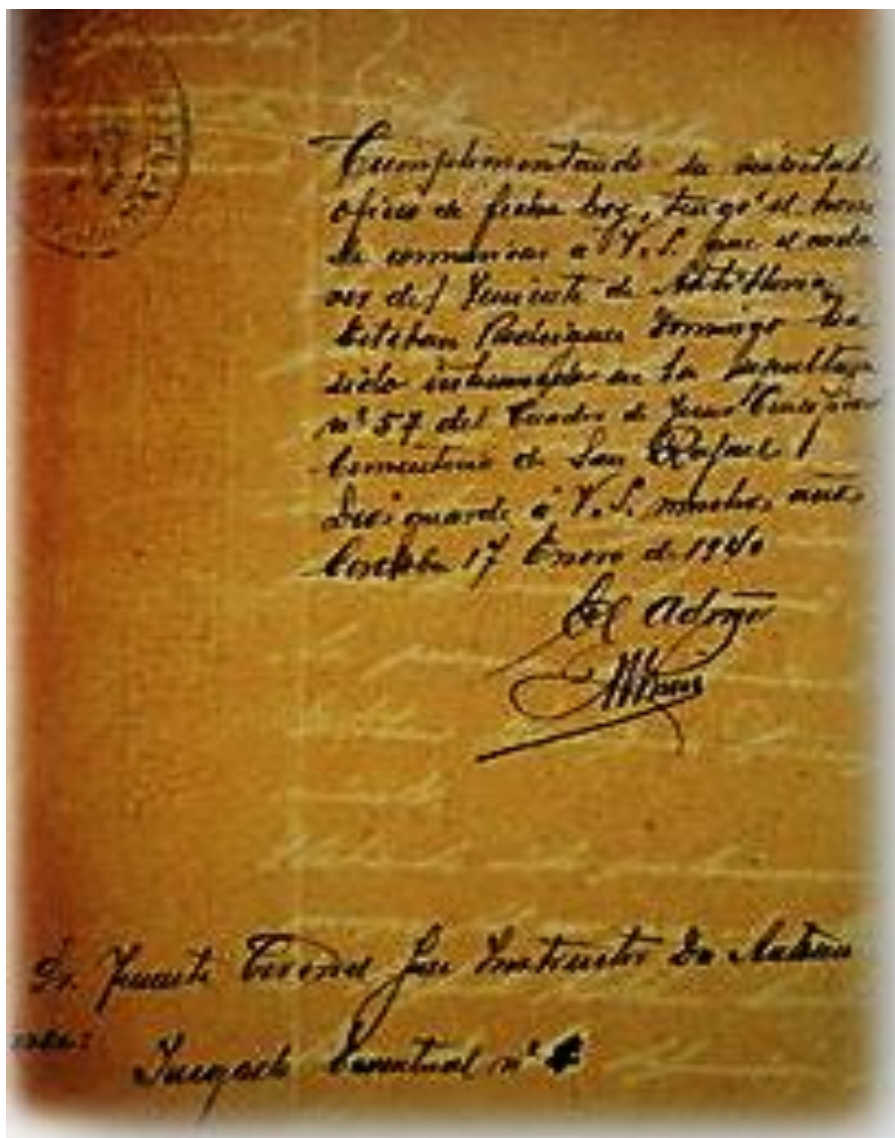 Cumplimentando su respetable
oficio de fecha hoy, tengo el honor
de comunicar a V.S. que el cada
ver del Teniente de Artilleria
Esteban Domingo ha
sido inhumado en la
nº 57 del Cuadro de
Cementerio de San Rafael
Dios guarde á V.S. muchos años
Cordoba 17 Enero de 1940
El Admor
Sr. Teniente Coronel Juez Instructor Don
Juzgado Eventual nº 4